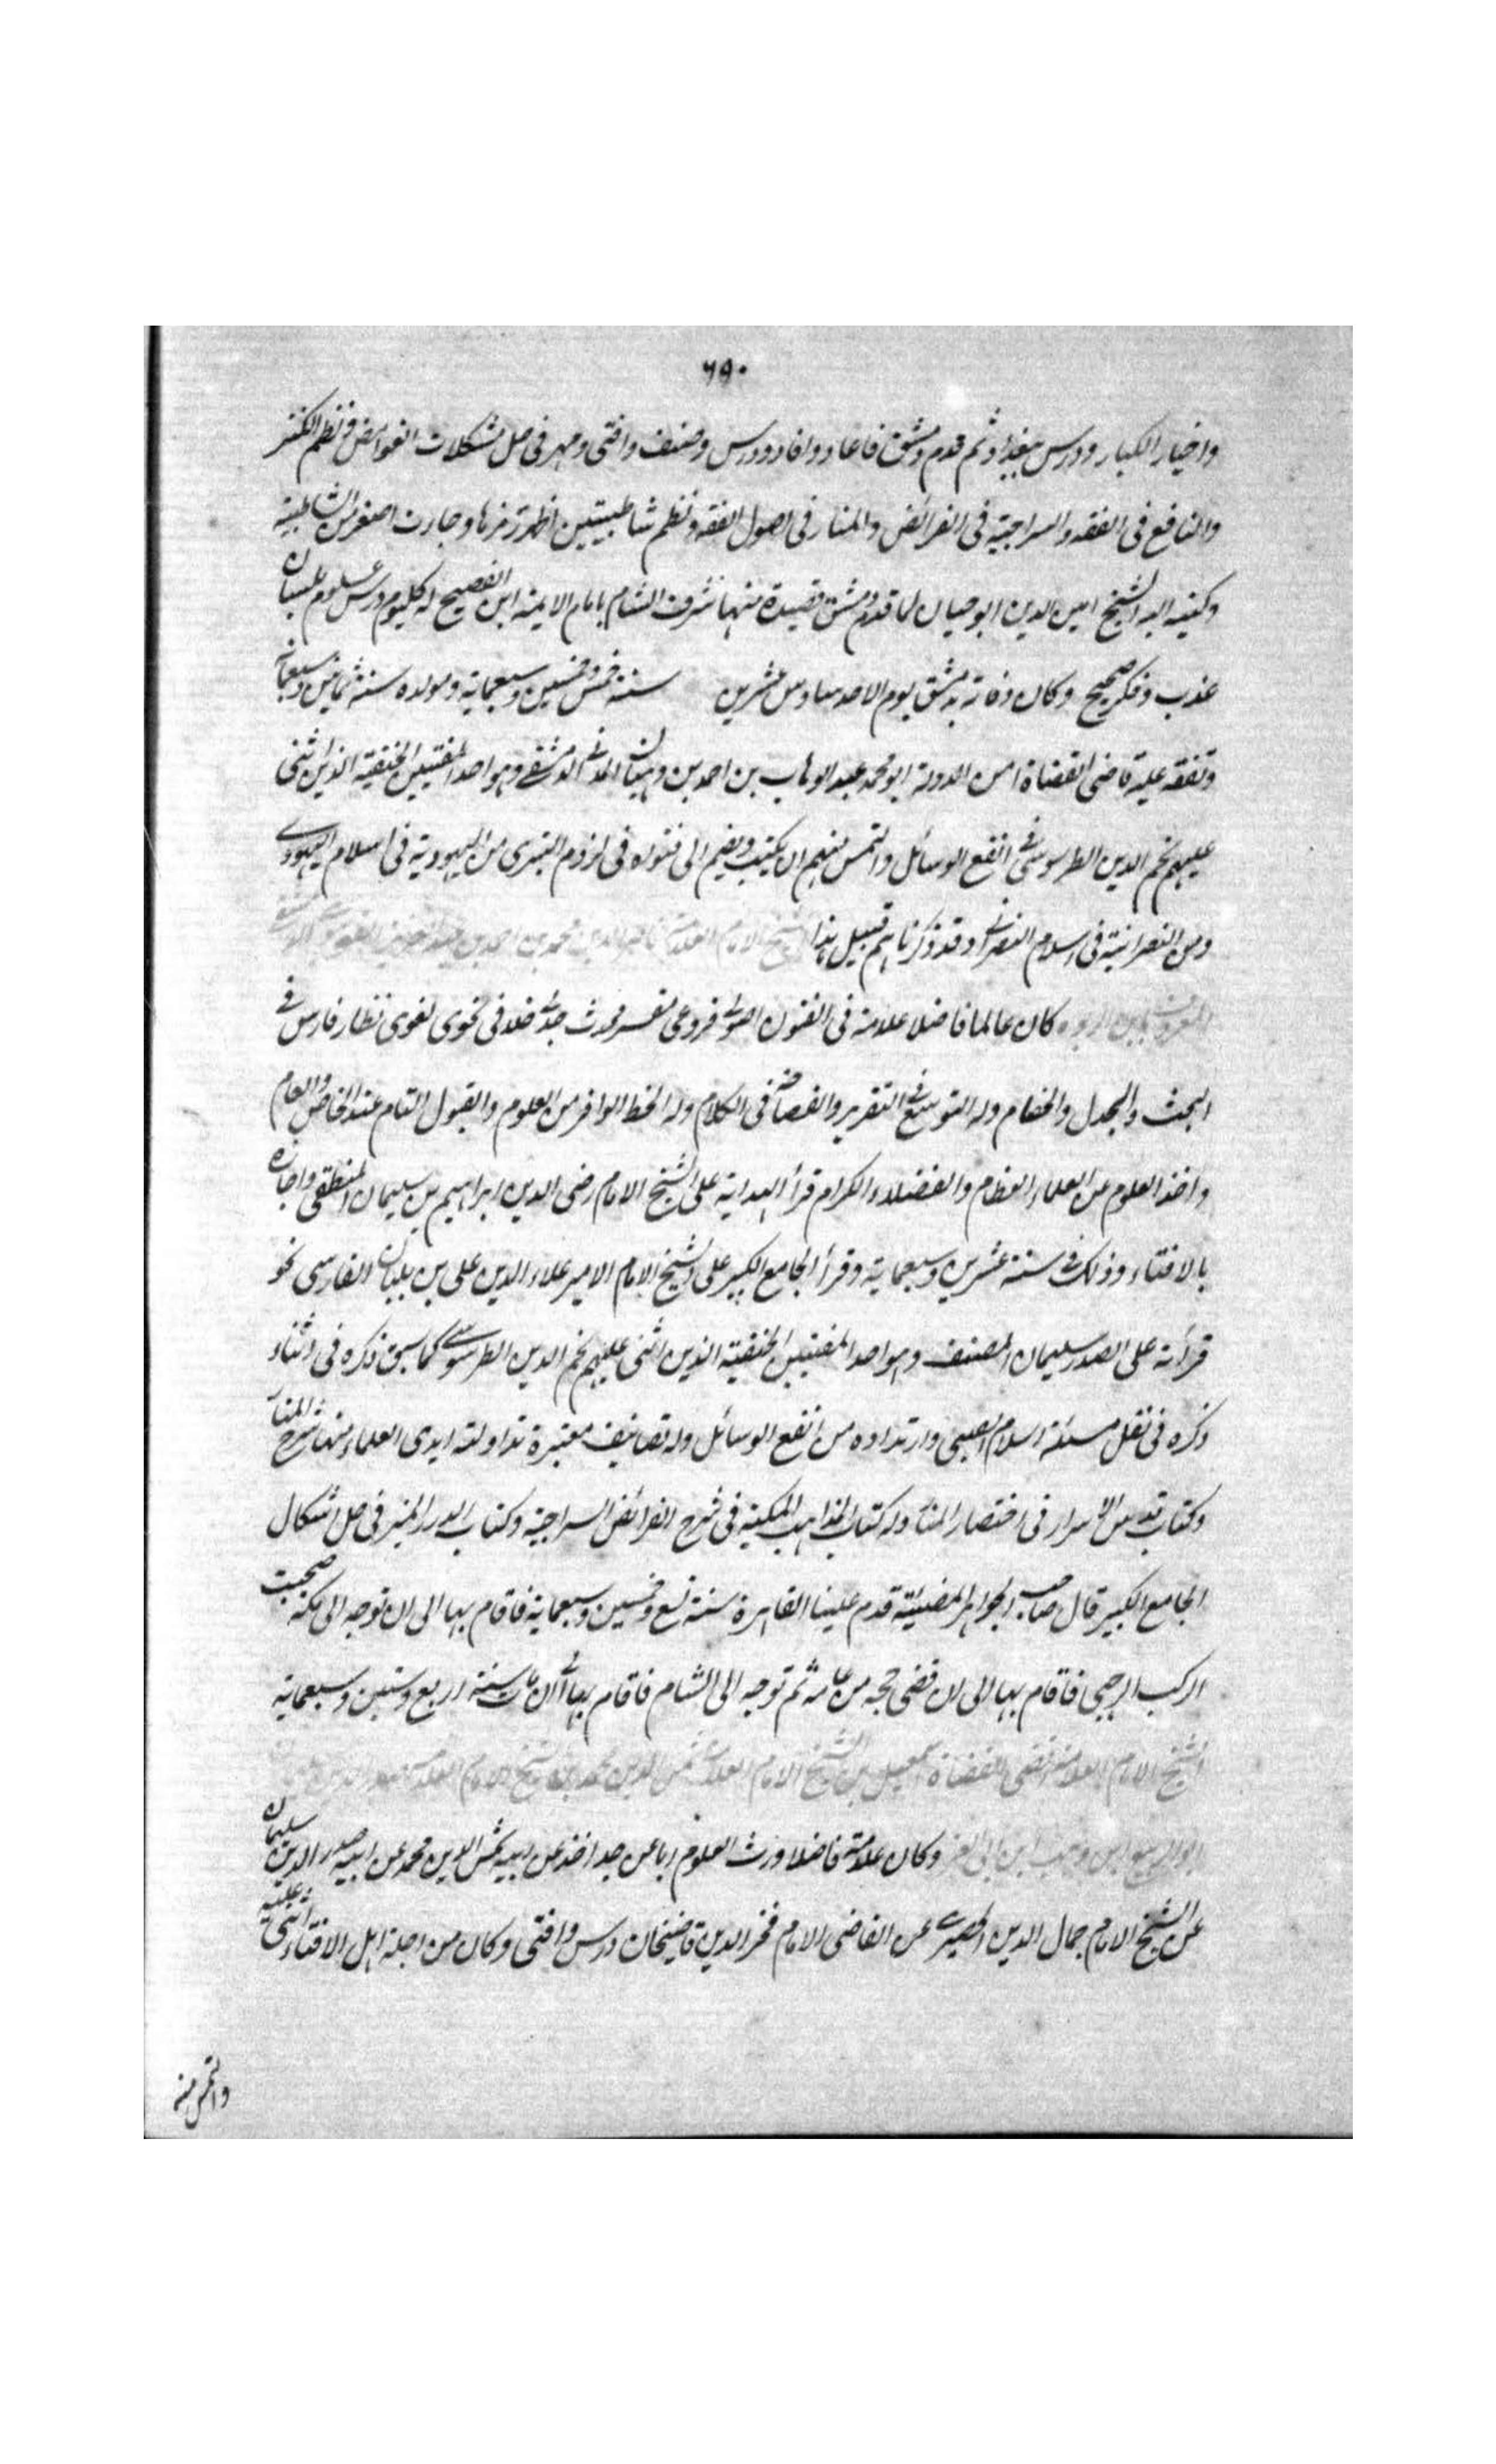 ٦٩٠
واخيار الكبار ودرس ببغداد ثم قدم دمشق فاعاد وافاد ودرس وصنف وافتى ومهر فى حل مشكلات الغوامض ونظم الكنز
والنافع فى الفقه والسراجية فى الفرائض والمنار فى اصول الفقه ونظم شاطبيتين اظهر رمزها وجاءت اصغر من الشاطبية
وكتبه اليه الشيخ امين الدين ابو حيان لما قدم دمشق قصيدة منها شرف الشام بامام الايمة ابن الفصيح له كل يوم درس علوم بلسان
عذب وفكر صحيح وكان وفاته بدمشق يوم الاحد سادس عشرين سنة خمس وخمسين وسبعماية ومولده سنة ثمانين وسبعماية
وتفقه عليه قاضى القضاة امين الدولة ابو محمد عبد الوهاب بن احمد بن وهبان المدنى الدمشقى وهو احد المفتيين الحنفية الذين اثنى
عليهم نجم الدين الطرسوسى فى انفع الوسائل والتمس منهم ان يكتب ويضم الى فتواه فى لزوم التبرى من اليهودية فى اسلام اليهودى
ومن النصرانية فى اسلام النصرانى وقد ذكرناهم قبيل هذا الشيخ الامام العلامة ناصر الدين محمد بن احمد بن عبد العزيز القونوى الدمشقى
المعروف بابن الربوه كان عالما فاضلا علامة فى الفنون اصولى فروعى مفسر محدث جدلى خلافى نحوى لغوى نظار فارس فى
البحث والجدل والخصام وله التوسع فى التقرير والفصاحة فى الكلام وله الحظ الوافر من العلوم والقبول التام عند الخاص والعام
واخذ العلوم عن العلماء العظام والفضلاء الكرام قرأ الهداية على الشيخ الامام رضى الدين ابراهيم بن سليمان المنطقى واجازه
بالافتاء وذلك فى سنة عشرين وسبعماية وقرأ الجامع الكبير على الشيخ الامام الامير علاء الدين على بن بلبان الفارسى نحو
قرأته على الصدر سليمان المصنف وهو احد المفتيين الحنفية الذين اثنى عليهم نجم الدين الطرسوسى كما سبق ذكره فى اثناء
ذكره فى نقل مسئلة اسلام الصبى وارتداده من انفع الوسائل وله تصانيف معتبرة تداولته ايدى العلماء منها شرح المنار
وكتاب قدس الاسرار فى اختصار المنار وله كتاب المذاهب المكية فى شرح الفرائض السراجية وكتاب الدر المنير فى حل اشكال
الجامع الكبير قال صاحب الجواهر المضيئة قدم علينا القاهرة سنة تسع وخمسين وسبعماية فاقام بها الى ان توجه الى مكة صحبت
الركب الرجبى فاقام بها الى ان قضى حجه من عامه ثم توجه الى الشام فاقام بها الى ان مات سنة اربع وستين وسبعماية
الشيخ الامام العلامة اقضى القضاة اسمعيل بن الشيخ الامام العلامة شمس الدين محمد بن الشيخ الامام العلامة صدر الدين سليمان
ابو الربيع ابن وهب ابن ابى العز وكان علامة فاضلا ورث العلوم ابا عن جد اخذ عن ابيه شمس الدين محمد عن ابيه صدر الدين سليمان
عن الشيخ الامام جمال الدين الحصيرى عن القاضى الامام فخر الدين قاضيخان درس وافتى وكان من اجلة اهل الافتاء اثنى عليه
والتمس منه